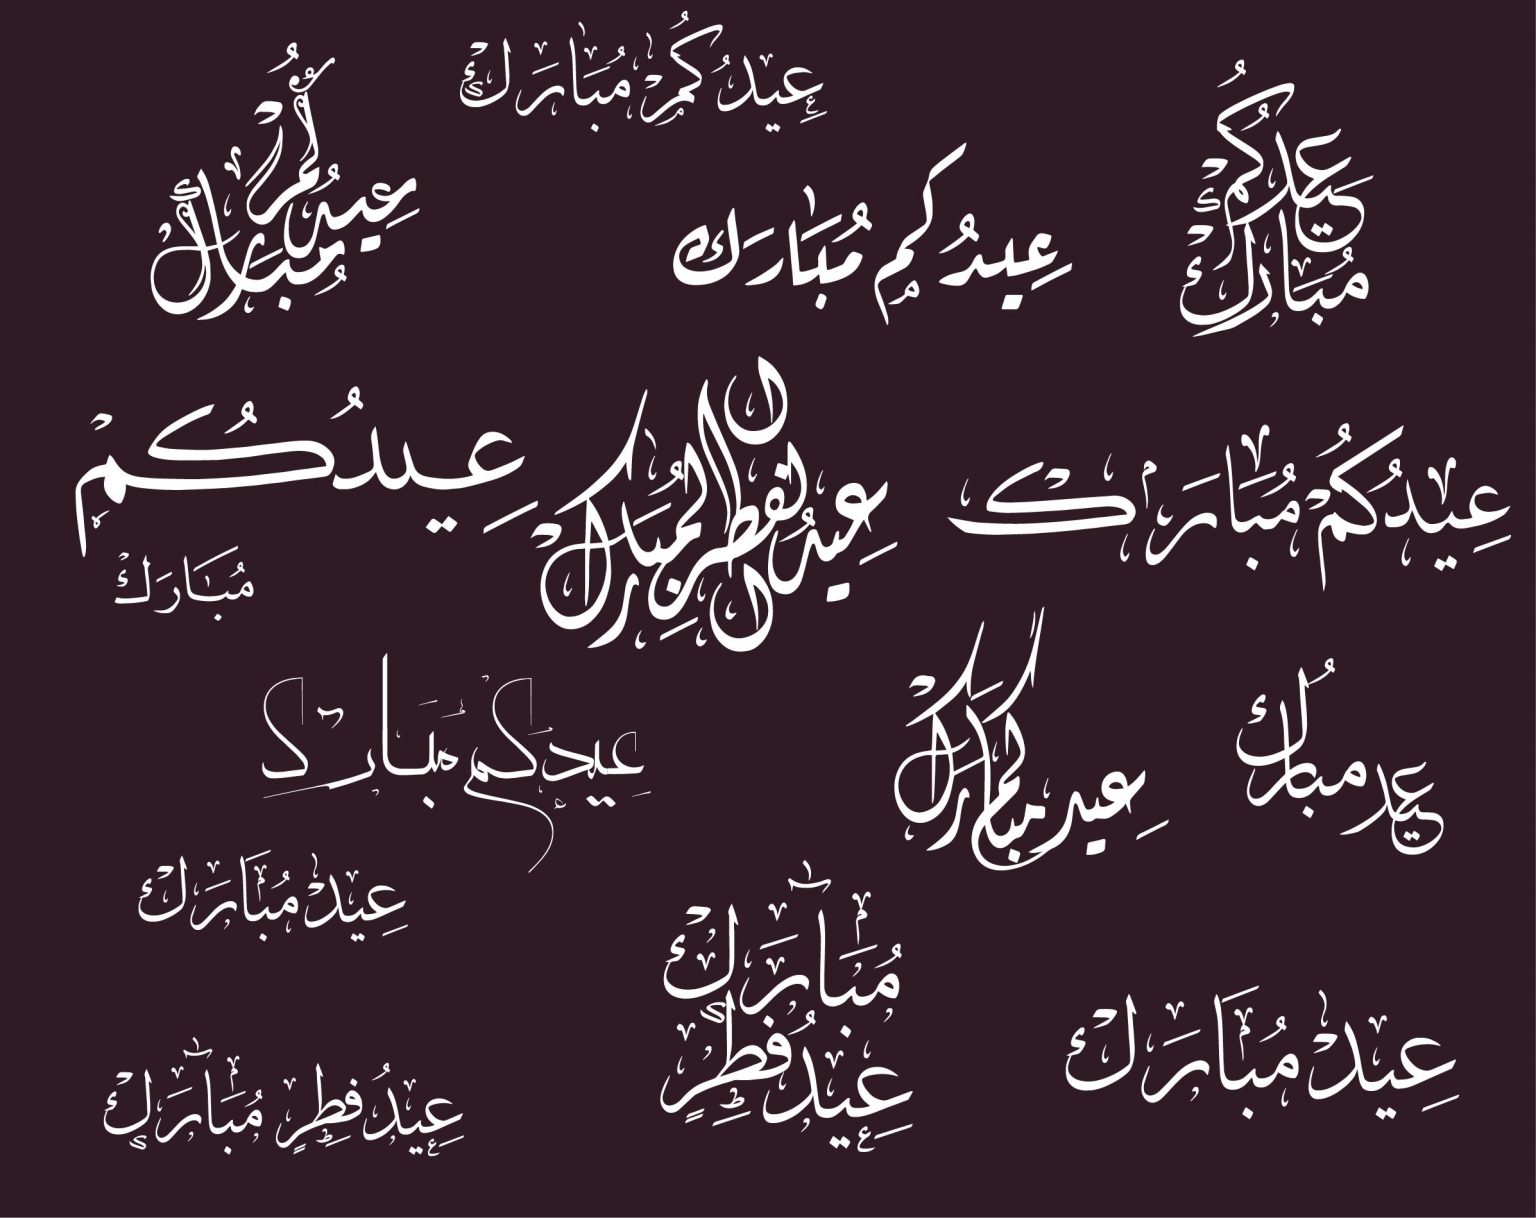 عِيدُكُمْ مُبَارَكْ
عِيدُكُمْ
مُبَارَكْ
عِيدُكُمْ
مُبَارَكْ
عِيدُكُم مُبَارَك
عِيدُكُمْ
مُبَارَكْ
عِيدُ الفِطْرِ المُبَارَكْ
عِيدُكُمْ مُبَارَك
عِيدكُم مُبَارك
عيدكم مبارك
عيد مبارك
عِيدْ مُبَارَكْ
مُبَارَكْ
عِيدُ فِطْرٍ
عِيدْ مُبَارَكْ
عِيدُ فِطْرٍ مُبَارَكْ